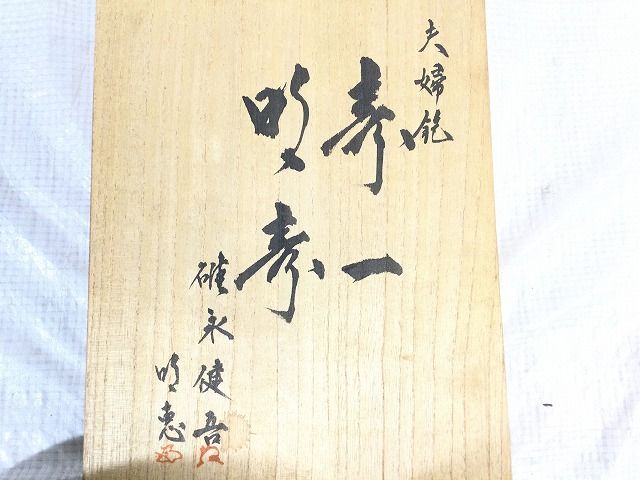 夫婦鉋
寿一
明寿
碓永健吾
明恵